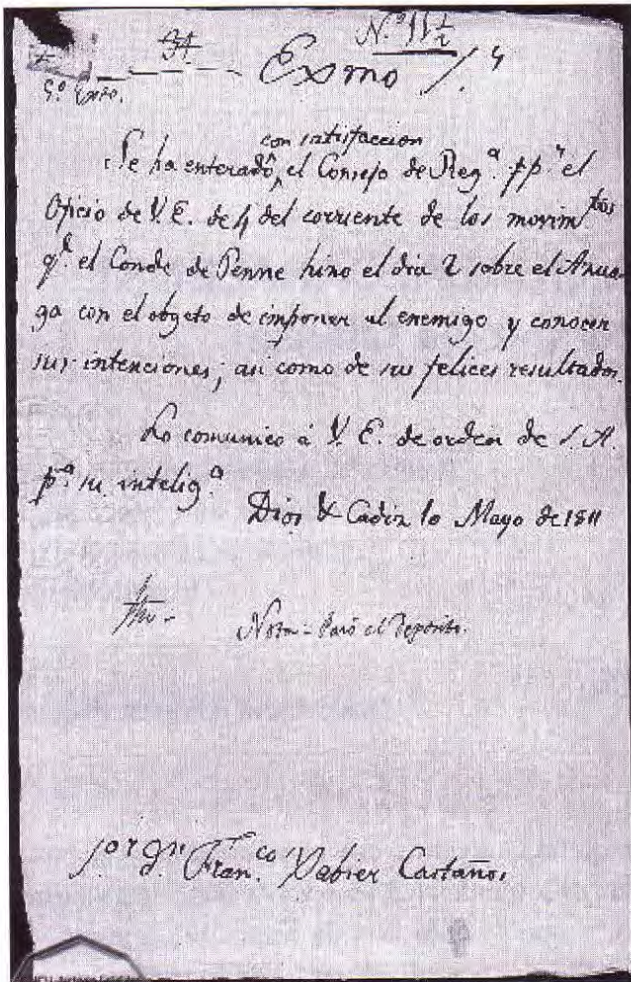 N.º 11 1/2
Exmo S.or
5.º Exto.
con satisfaccion
Se ha enterado el Consejo de Reg.ª p.r el
Oficio de V. E. de 4 del corriente de los movim.tos
q.e el Conde de Penne hizo el dia 2 sobre el Azua-
ga con el objeto de imponer al enemigo y conocer
sus intenciones; asi como de sus felices resultados.
Lo comunico á V. E. de orden de S. A.
p.ª su intelig.ª
Dios &c Cadiz 10 Mayo de 1811
fho.
Nota = Pasó el Deposito.
S.or Gn. Fran.co Xabier Castaños